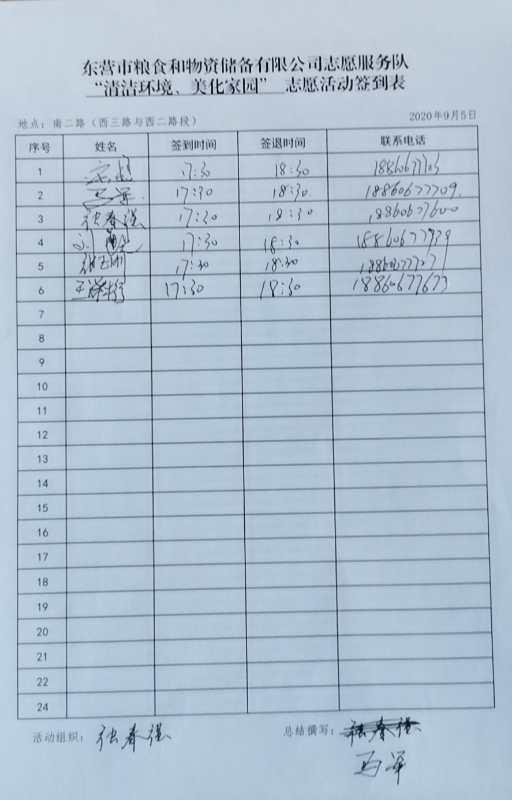 东营市粮食和物资储备有限公司志愿服务队
“清洁环境、美化家园” 志愿活动签到表
地点：南二路（西三路与西二路段） 2020年9月5日
序号 姓名 签到时间 签退时间 联系电话
1 17:30 18:30
2 17:30 18:30 18860677709
3 张春强 17:30 18:30 18860677600
4 17:30 18:30 18860677939
5 17:30 18:30
6 17:30 18:30 18860677677
7
8
9
10
11
12
13
14
15
16
17
18
19
20
21
22
24
活动组织：张春强 总结撰写：张春强